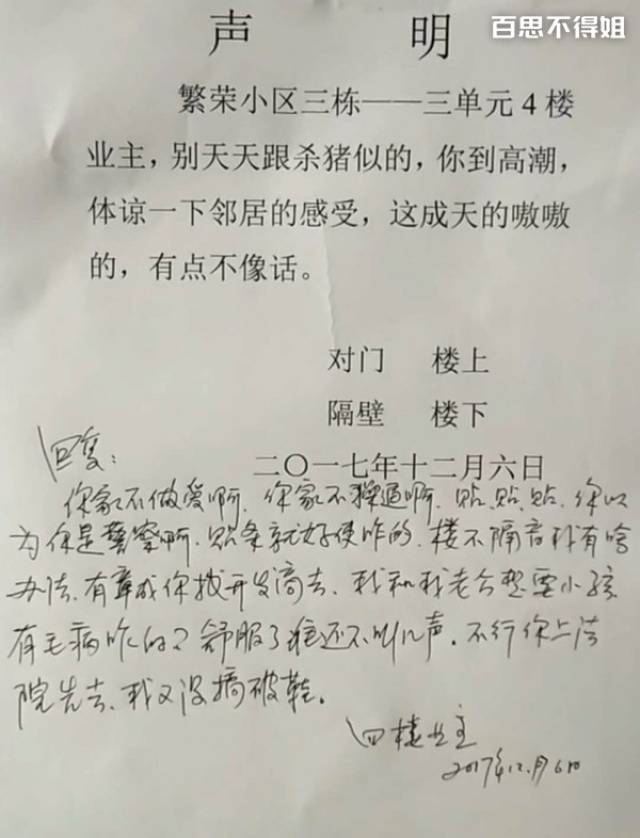 百思不得姐
声 明
繁荣小区三栋——三单元4楼
业主，别天天跟杀猪似的，你到高潮，
体谅一下邻居的感受，这成天的嗷嗷
的，有点不像话。
对门 楼上
隔壁 楼下
回复：
二〇一七年十二月六日
你家不做爱啊，你家不操逼啊，贴、贴、贴、你以
为你是警察啊，贴条就好使咋的，楼不隔音我有啥
办法，有章程你找开发商去、我和我老公想要小孩
有毛病咋的？舒服了谁还不叫几声。不行你上法
院告去、我又没搞破鞋。
四楼业主
2017年12月6日